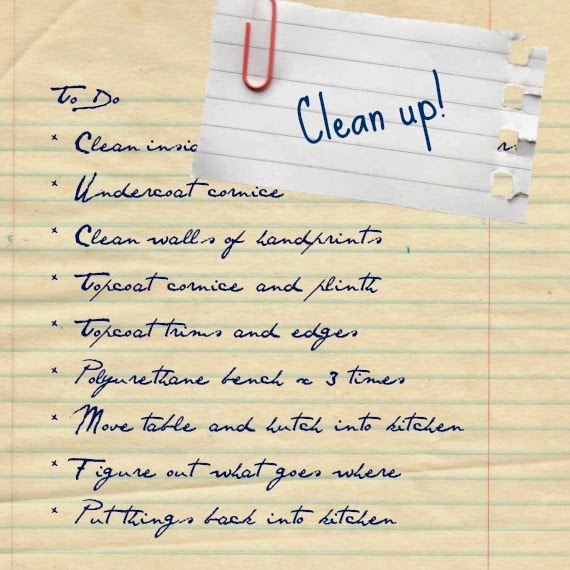 Clean up!
To Do
* Clean insid
* Undercoat cornice
* Clean walls of handprints
* Topcoat cornice and plinth
* Topcoat trims and edges
* Polyurethane bench x 3 times
* Move table and hutch into kitchen
* Figure out what goes where
* Put things back into kitchen